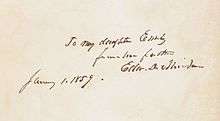 To my daughter Emily
from her father
January 1. 1859.